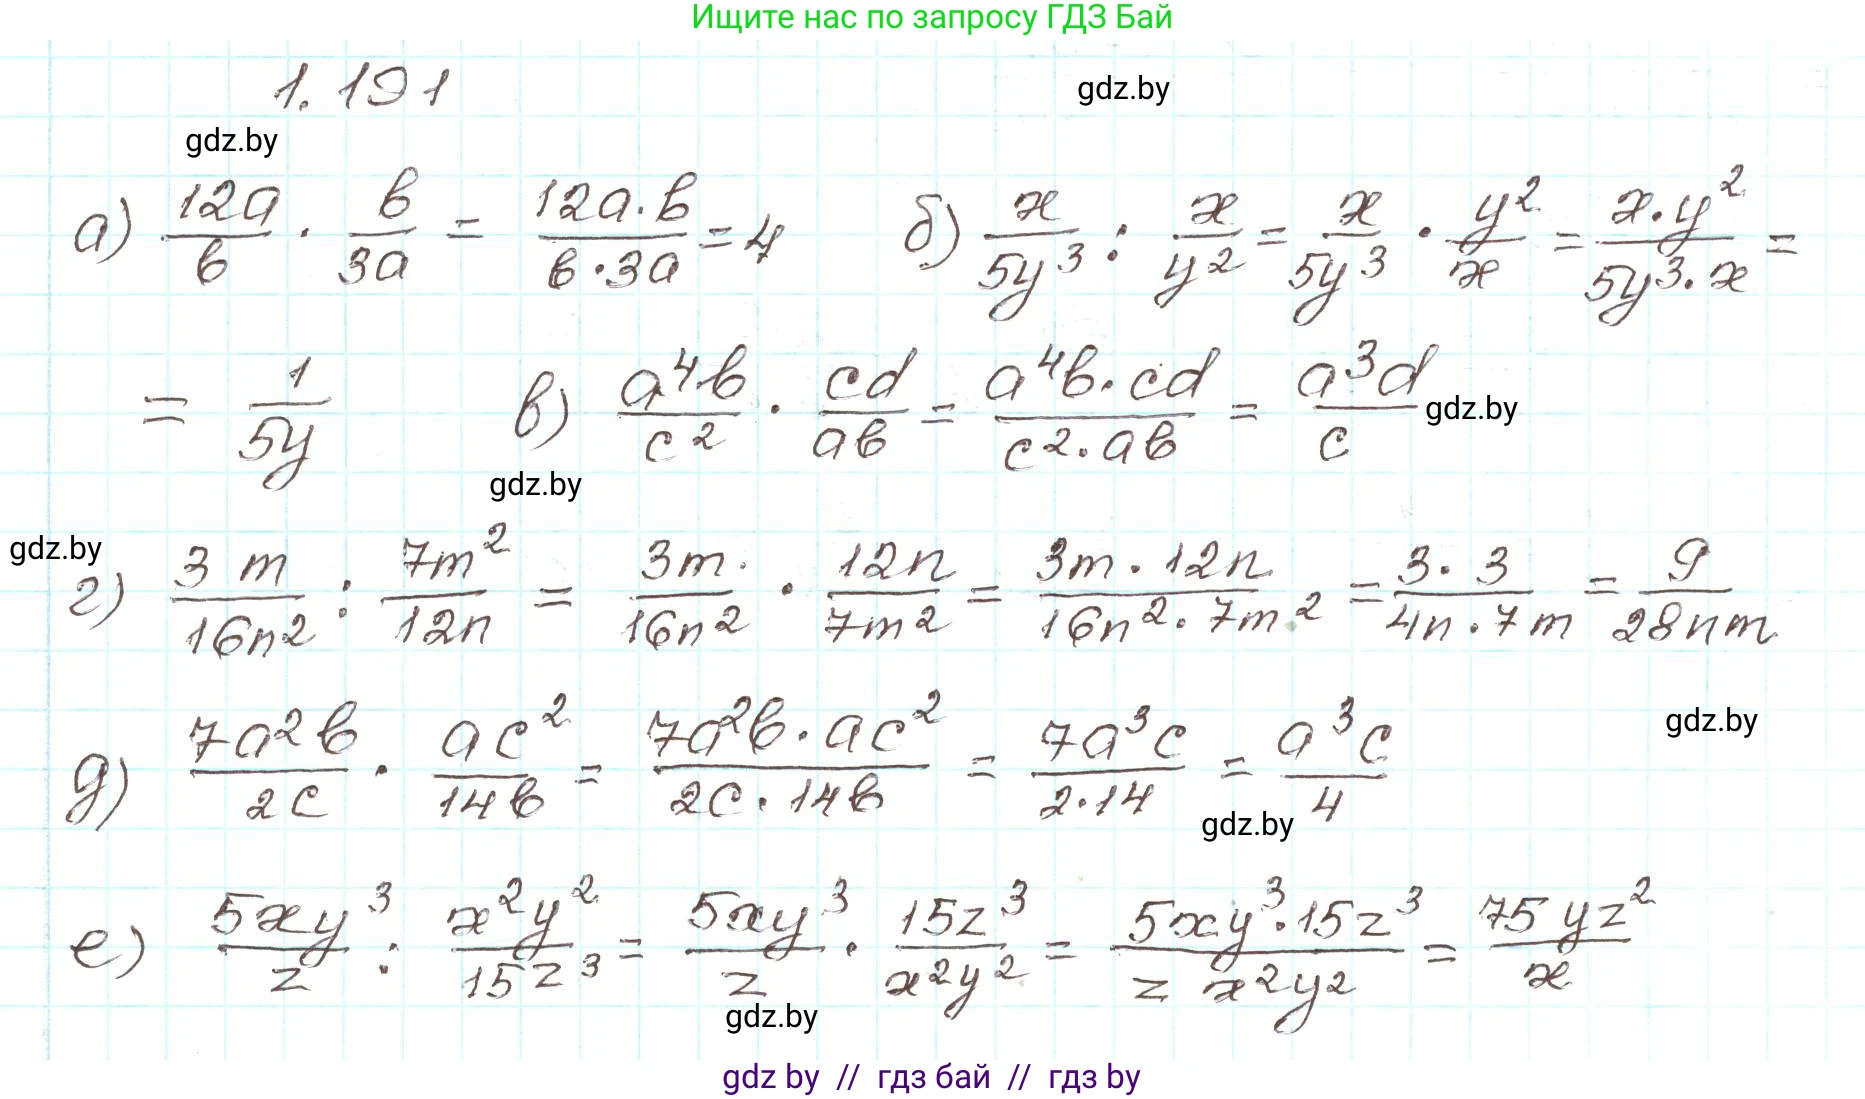 Ищите нас по запросу ГДЗ Бай
1.191
gdz.by
gdz.by
а) 12a/b · b/3a = 12a·b/b·3a = 4   б) x/5y³ : x/y² = x/5y³ · y²/x = x·y²/5y³·x =
= 1/5y   в) a⁴b/c² · cd/ab = a⁴b·cd/c²·ab = a³d/c
gdz.by
gdz.by
gdz.by
г) 3m/16n² : 7m²/12n = 3m/16n² · 12n/7m² = 3m·12n/16n²·7m² = 3·3/4n·7m = 9/28nm
gdz.by
д) 7a²b/2c · ac²/14b = 7a²b·ac²/2c·14b = 7a³c/2·14 = a³c/4
gdz.by
е) 5xy³/z : x²y²/15z³ = 5xy³/z · 15z³/x²y² = 5xy³·15z³/z x²y² = 75yz²/x
gdz.by
gdz by // гдз бай // гдз by